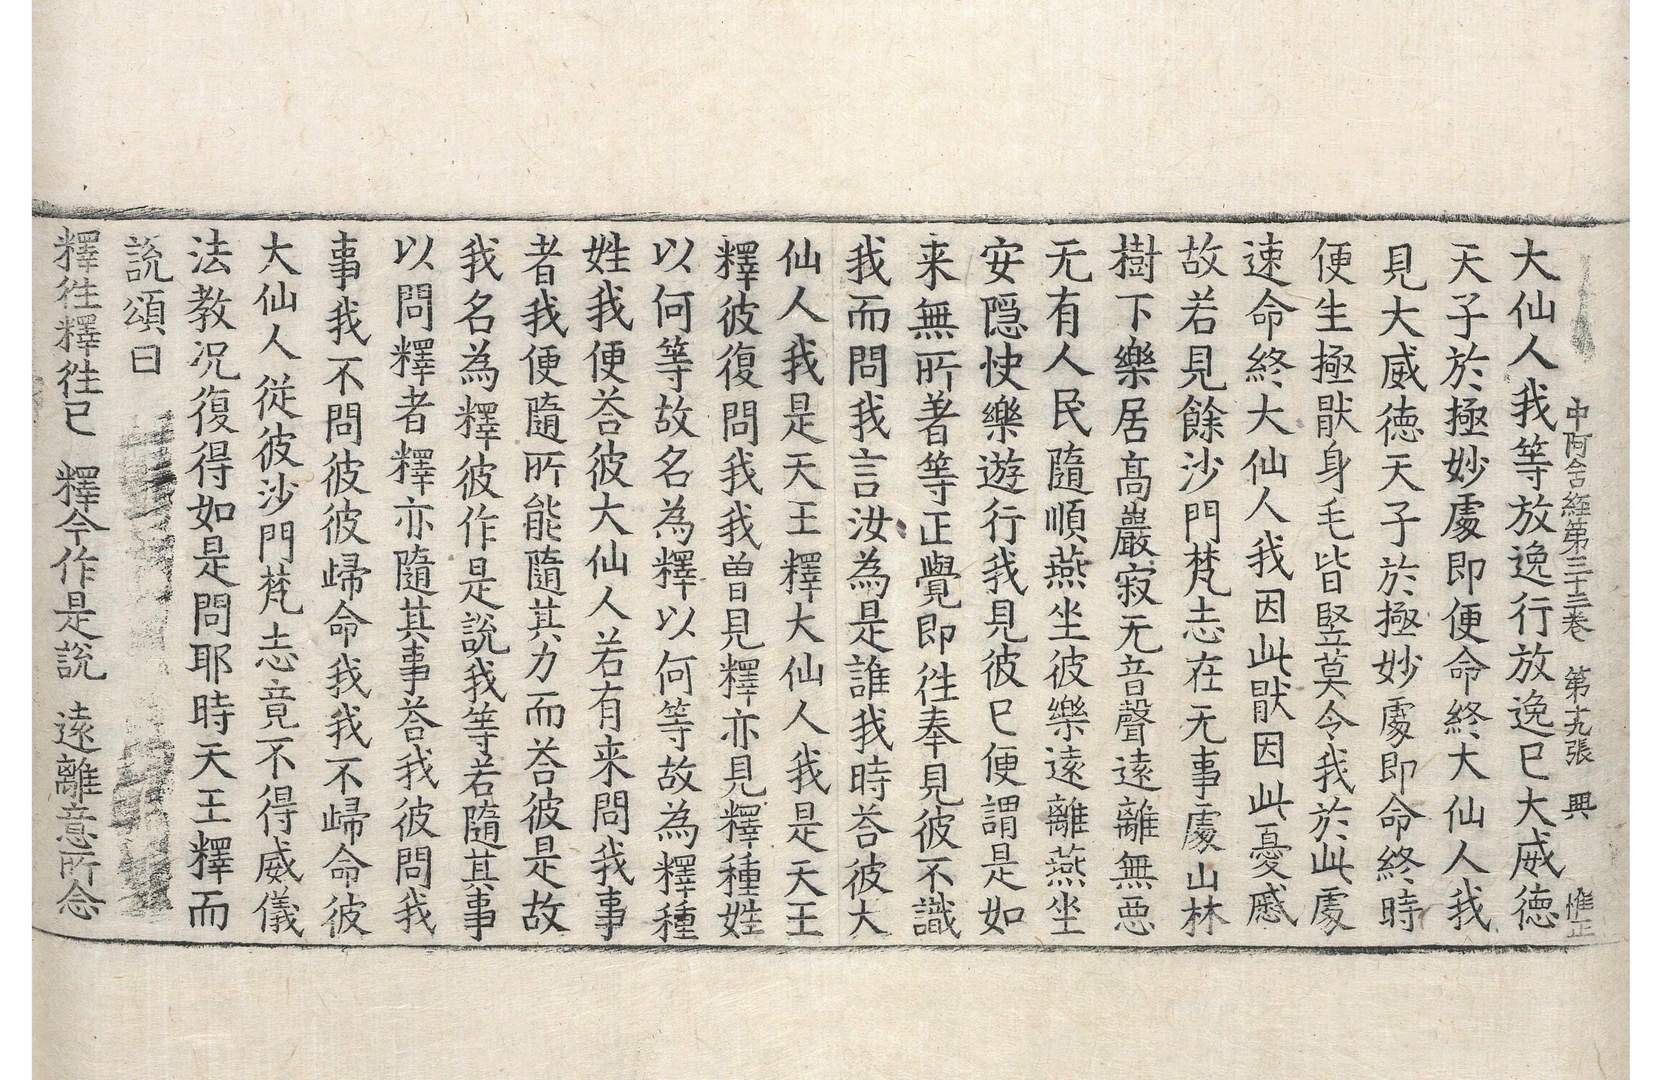 中阿含経第三十三卷　第十九張　興　惟正
大仙人我等放逸行放逸已大威德
天子於極妙處即便命終大仙人我
見大威德天子於極妙處即命終時
便生極猒身毛皆竪莫令我於此處
速命終大仙人我因此猒因此憂慼
故若見餘沙門梵志在无事處山林
樹下樂居髙巖寂无音聲遠離無惡
无有人民隨順燕坐彼樂遠離燕坐
安隠快樂遊行我見彼已便謂是如
来無所著等正覺即徃奉見彼不識
我而問我言汝為是誰我時荅彼大
仙人我是天王釋大仙人我是天王
釋彼復問我我曽見釋亦見釋種姓
以何等故名為釋以何等故為釋種
姓我便荅彼大仙人若有来問我事
者我便隨所能隨其力而荅彼是故
我名為釋彼作是說我等若隨其事
以問釋者釋亦隨其事荅我彼問我
事我不問彼彼歸命我我不歸命彼
大仙人從彼沙門梵志竟不得威儀
法教况復得如是問耶時天王釋而
說頌曰
釋徃釋徃已　釋今作是說　遠離意所念